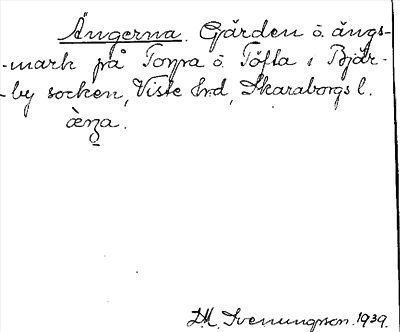 Ängerna. Gärden o. ängs-
-mark på Torpa o. Töfta i Bjär-
-by socken, Viste hrd, Skaraborgs l.
D.M. Svenungson. 1939.